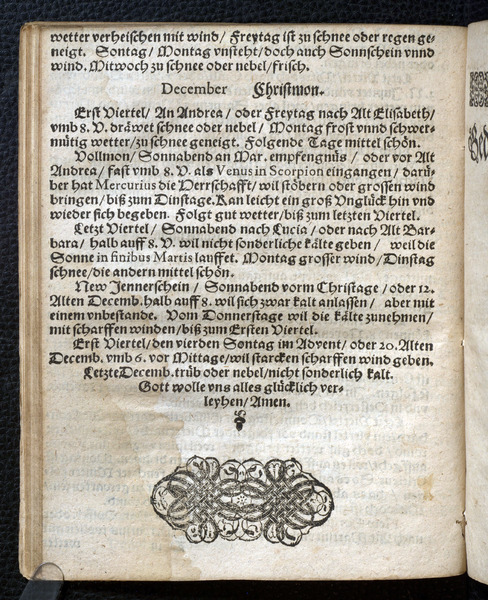 wetter verheischen mit wind/ Freytag ist zu schnee oder regen ge-
neigt. Sontag/ Montag vnsteht/ doch auch Sonnschein vnnd
wind. Mitwoch zu schnee oder nebel/ frisch.
December Christmon.
Erst Viertel/ An Andrea/ oder Freytag nach Alt Elisabeth/
vmb 8. V. dräwet schnee oder nebel/ Montag frost vnnd schwer-
mütig wetter/ zu schnee geneigt. Folgende Tage mittel schön.
Vollmon/ Sonnabend an Mar. empfengnüs/ oder vor Alt
Andrea/ fast vmb 8. V. als Venus in Scorpion eingangen/ darü-
ber hat Mercurius die Herrschafft/ wil stöbern oder grossen wind
bringen/ biß zum Dinstage. Kan leicht ein groß Vnglück hin vnd
wieder sich begeben. Folgt gut wetter/ biß zum letzten Viertel.
Letzt Viertel/ Sonnabend nach Lucia/ oder nach Alt Bar-
bara/ halb auff 8. V. wil nicht sonderliche kälte geben/ weil die
Sonne in finibus Martis lauffet. Montag grosser wind/ Dinstag
schnee/ die andern mittel schön.
New Jennerschein/ Sonnabend vorm Christage/ oder 12.
Alten Decemb. halb auff 8. wil sich zwar kalt anlassen/ aber mit
einem vnbestande. Vom Donnerstage wil die kälte zunehmen/
mit scharffen winden/ biß zum Ersten Viertel.
Erst Viertel/ den vierden Sontag im Advent/ oder 20. Alten
Decemb. vmb 6. vor Mittage/ wil starcken scharffen wind geben.
Letzte Decemb. trüb oder nebel/ nicht sonderlich kalt.
Gott wolle vns alles glücklich ver-
leyhen/ Amen.